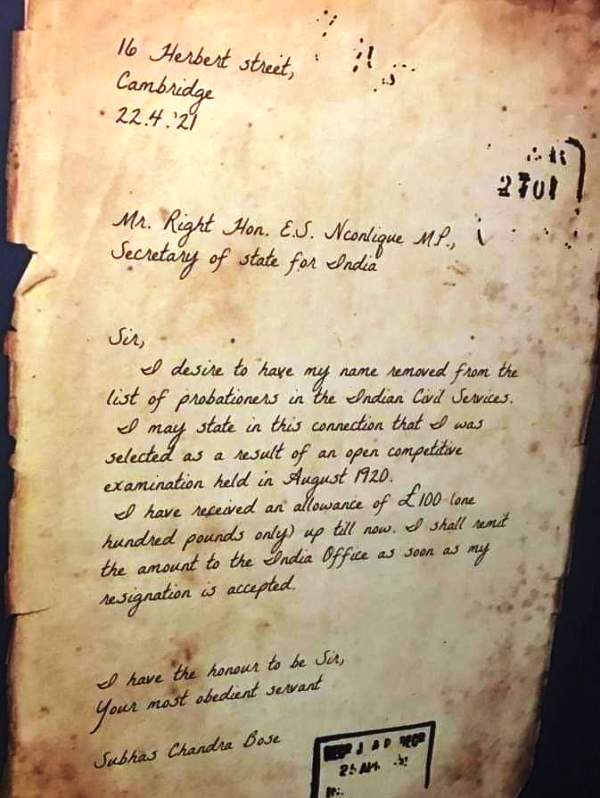 16 Herbert street,
Cambridge
22.4.'21
2701
Mr. Right Hon. E.S. Nconlique MP.,
Secretary of state for India
Sir,
I desire to have my name removed from the
list of probationers in the Indian Civil Services.
I may state in this connection that I was
selected as a result of an open competitive
examination held in August 1920.
I have received an allowance of £100 (one
hundred pounds only) up till now. I shall remit
the amount to the India Office as soon as my
resignation is accepted.
I have the honour to be Sir,
Your most obedient servant
Subhas Chandra Bose